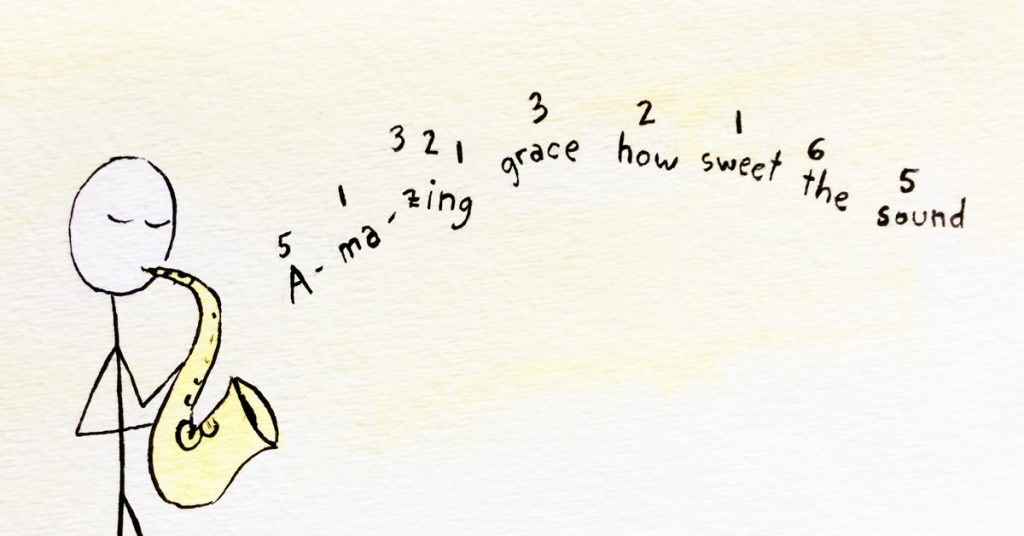 5 1 3 2 1 3 2 1 6 5
A- ma- zing grace how sweet the sound